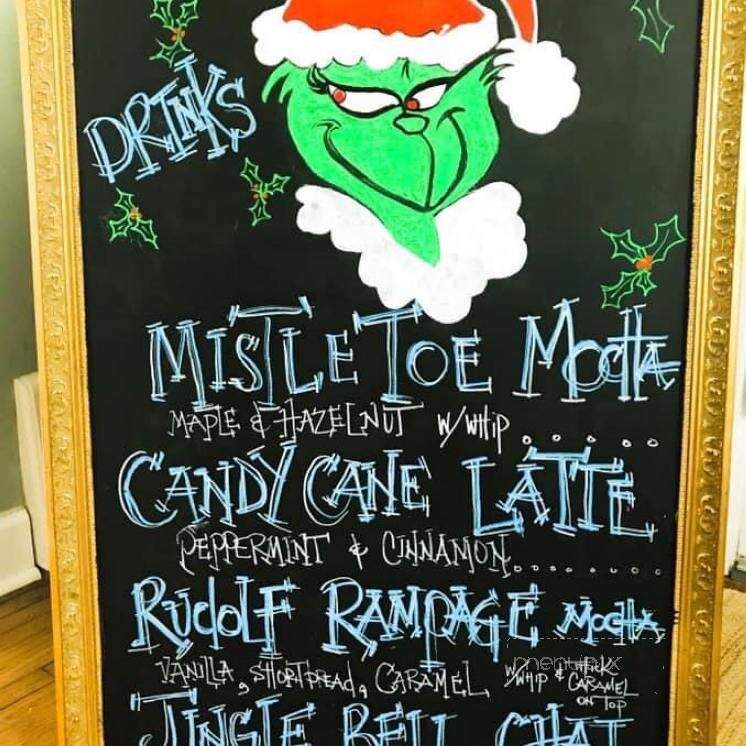 DRINKS
MISTLE TOE MOCHA
MAPLE & HAZELNUT W/WHIP . . . . . .
CANDY CANE LATTE
PEPPERMINT & CINNAMON. . . . . . . . .
RUDOLF RAMPAGE MOCHA
VANILLA, SHORTBREAD, CARAMEL W/WHIP &
CARAMEL
ON TOP
JINGLE BELL CHAI